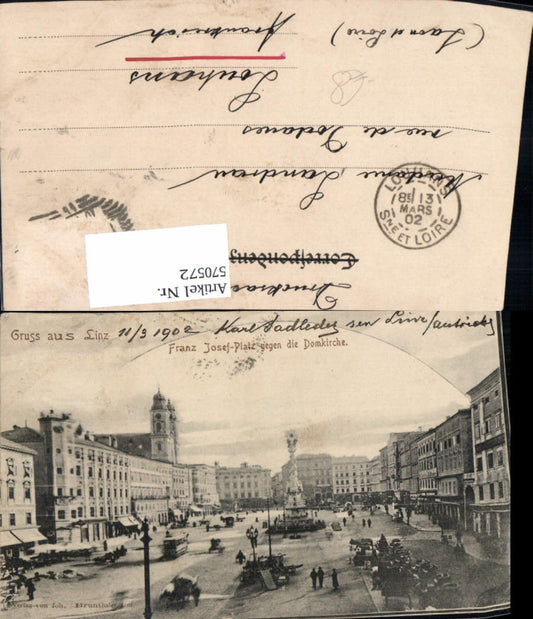 Drucksac
Correspondenz
Madame Landreau
rue de Bodanes
Louhans
Frankreich
(Saone et Loire)
58
LOUHANS
8E 13
MARS
02
SNE ET LOIRE
Artikel Nr.
570572
Gruss aus Linz 11/3 1902 Karl Sadleder sen Linz/autriche
Franz Josef-Platz gegen die Domkirche.
Verlag von Joh.